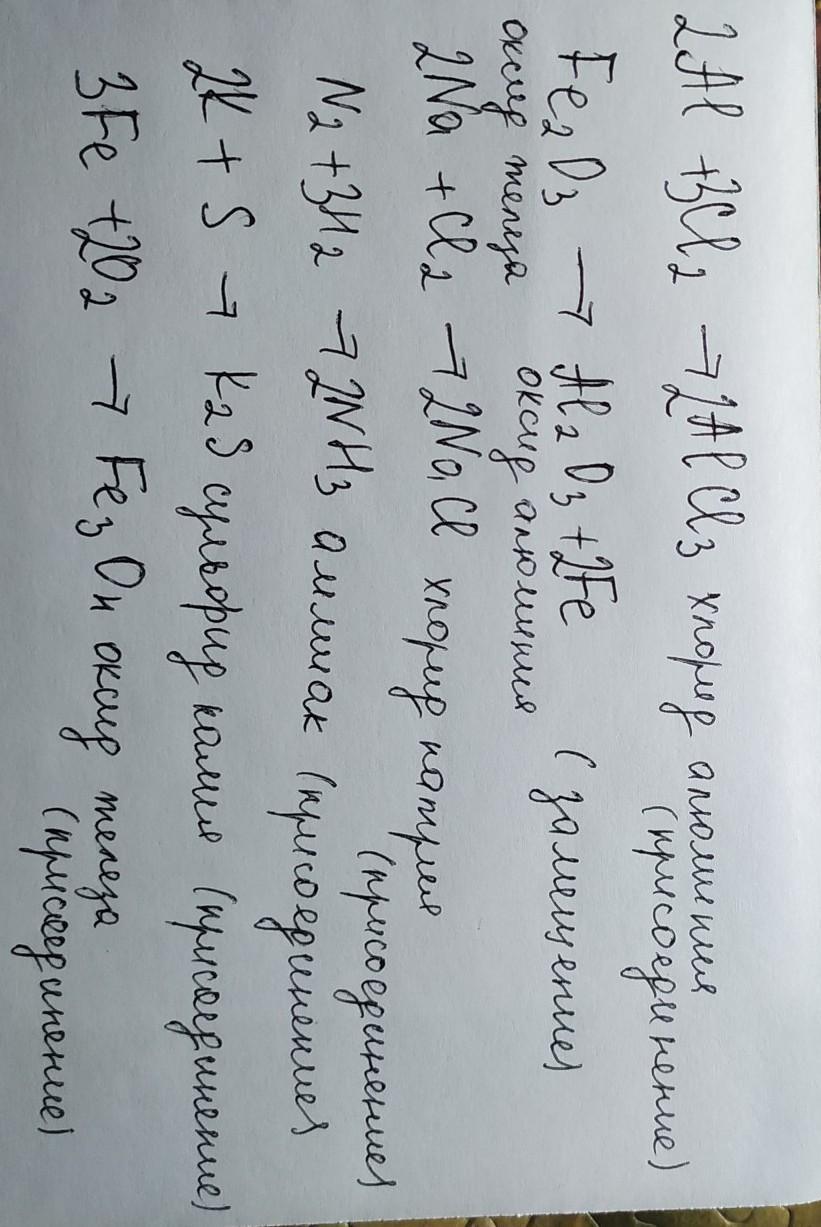 2Al + 3Cl2 → 2AlCl3 хлорид алюминия
(присоединение)
Fe2O3 → Al2O3 + 2Fe (замещение)
оксид железа оксид алюминия
2Na + Cl2 → 2NaCl хлорид натрия
(присоединение)
N2 + 3H2 → 2NH3 аммиак (присоединение)
2K + S → K2S сульфид калия (присоединение)
3Fe + 2O2 → Fe3O4 оксид железа
(присоединение)